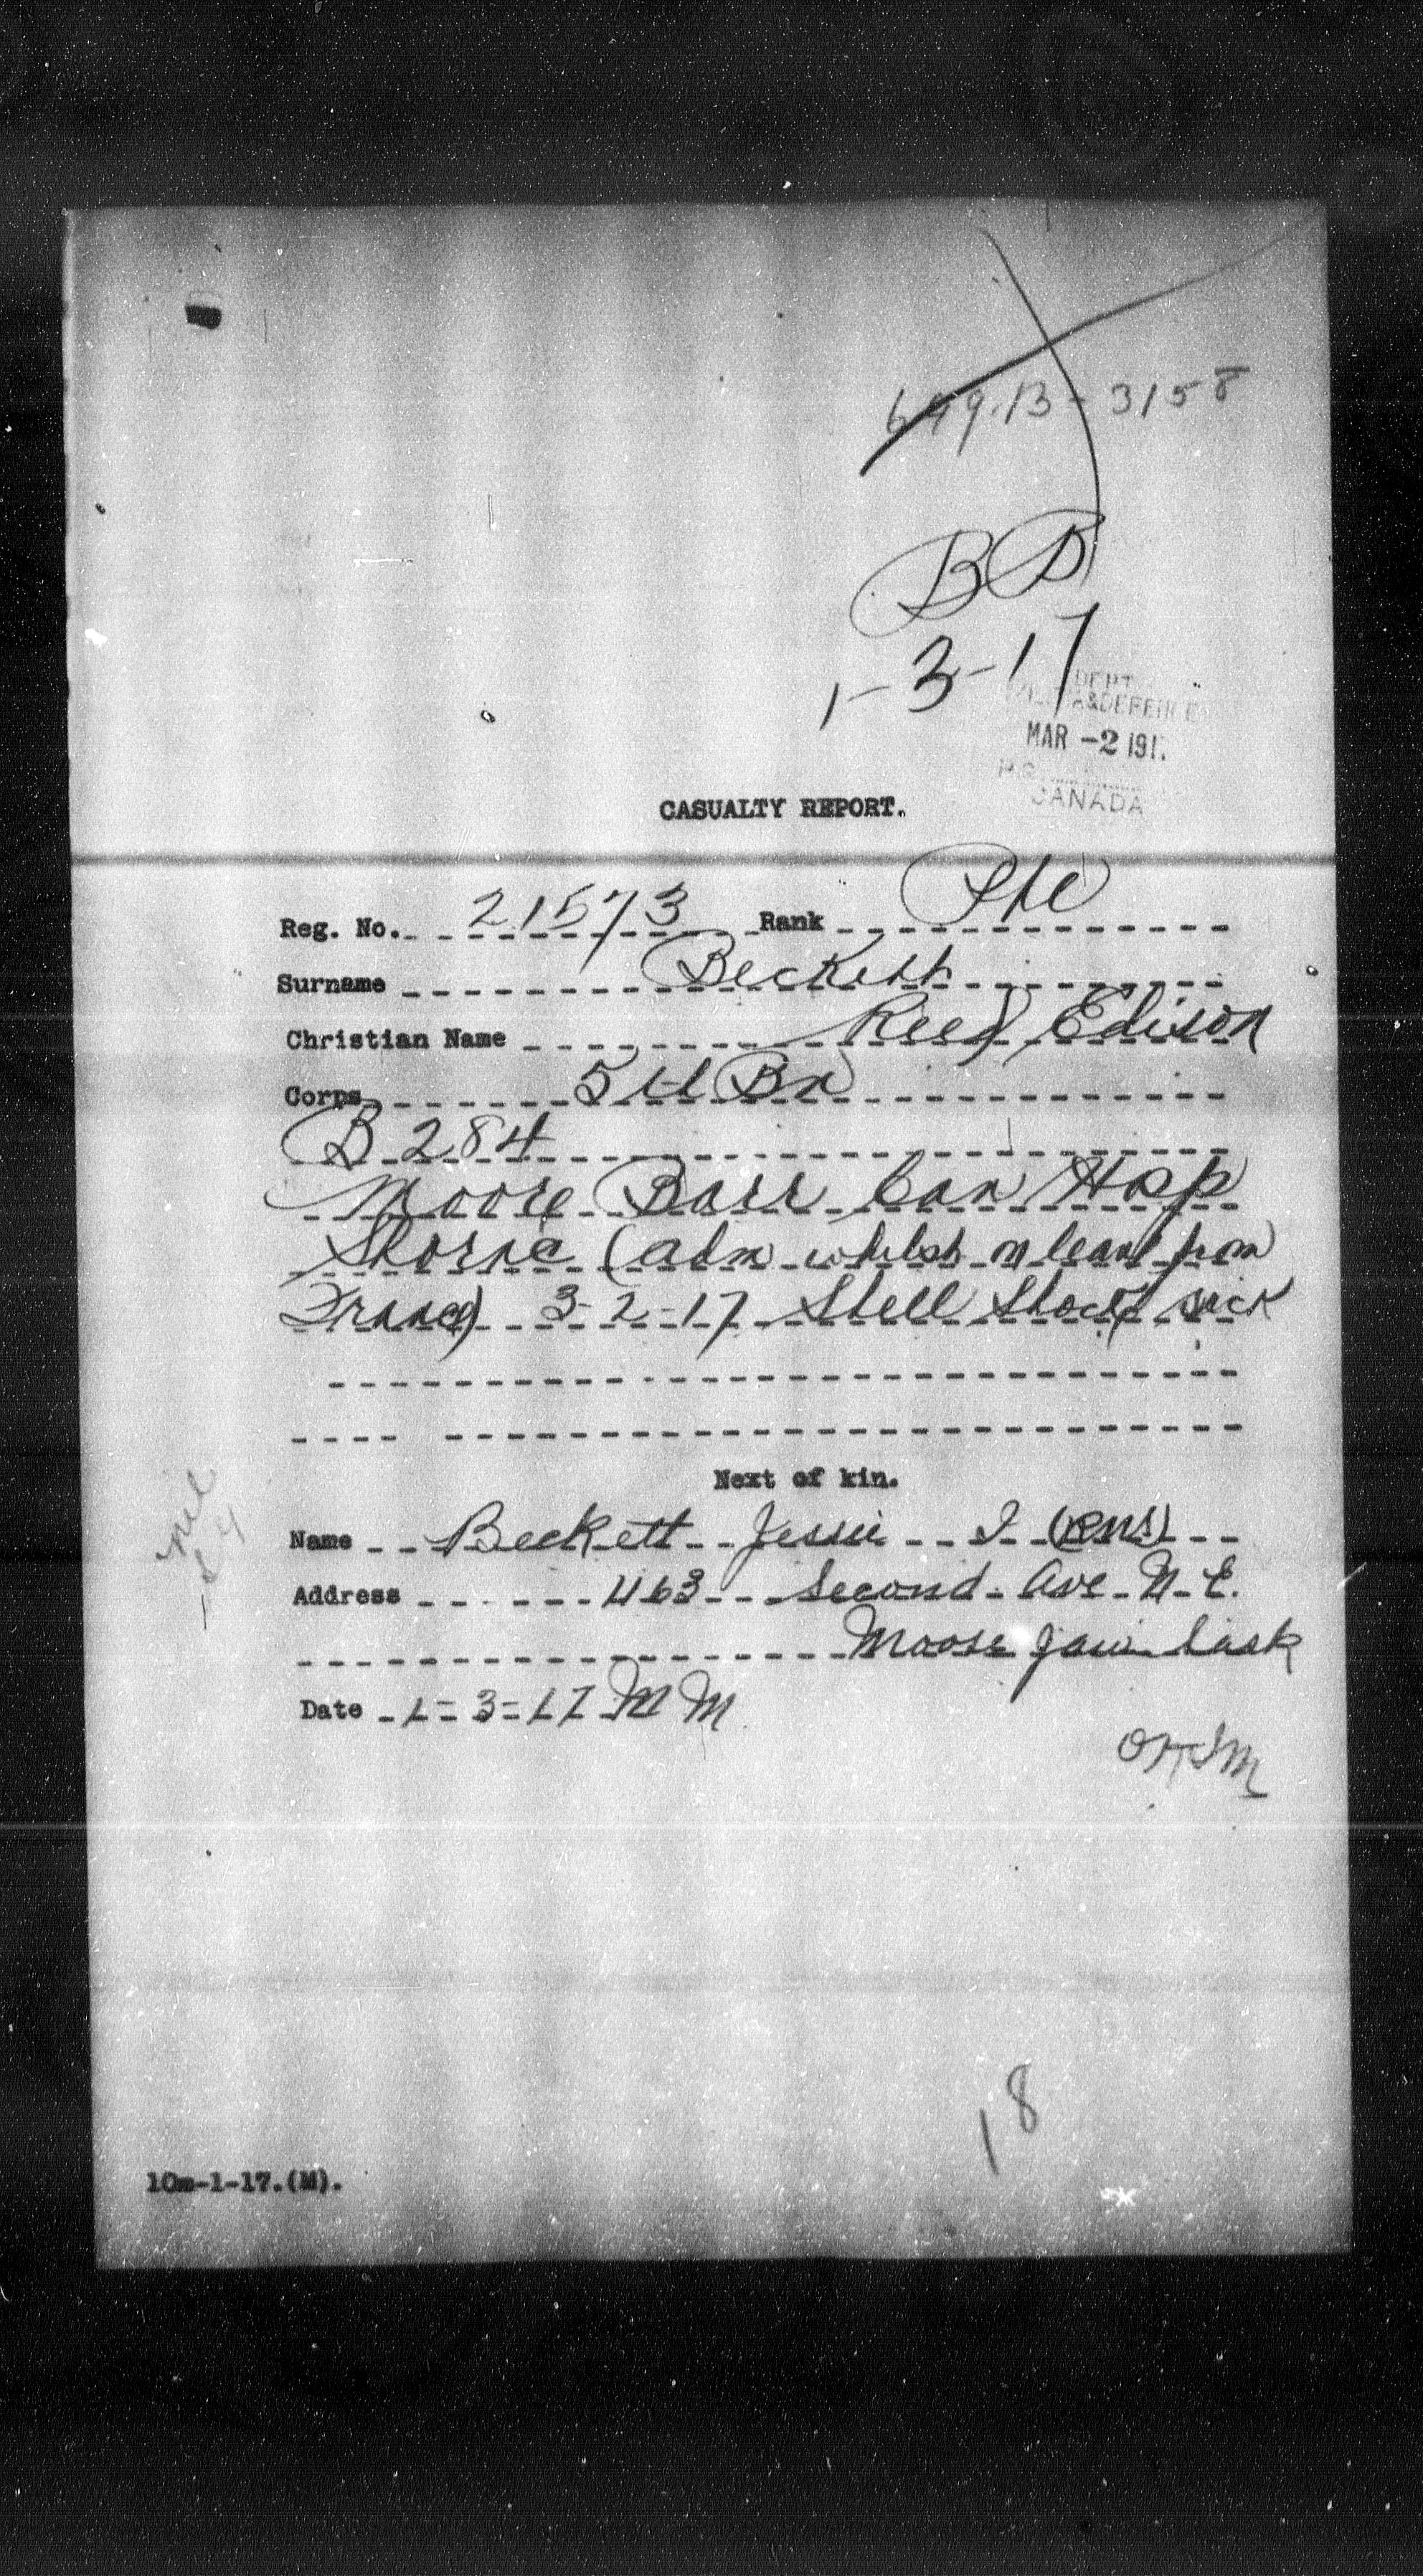 649-B-3158
BB
1-3-17
DEPT
&DEFENCE
MAR -2 191
CANADA
CASUALTY REPORT.
Reg. No. 21573 Rank Pte
Surname Beckett
Christian Name Reed Edison
Corps 5th Bn
B 284
Moore Barr Can Hosp
Shorne (adm whilst on leave from
France) 3-2-17 Shell Shock sick
Next of kin.
Name Beckett Jessie I
Address 463 Second Ave N.E.
Moose Jaw Sask
Date 1-3-17 MM
18
10m-1-17.(M).